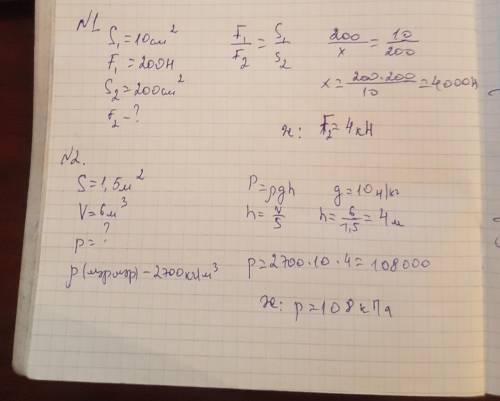 №1.
S₁=10см²
F₁=200Н
S₂=200см²
F₂-?
F₁/F₂ = S₁/S₂
200/x = 10/200
x = 200·200/10 = 4000Н
ж: F₂=4кН
№2.
S=1,5м²
V=6м³
p=?
ρ(мәрмәр)-2700кг/м³
P=ρgh g=10н/кг
h=V/S h=6/1,5=4м
p=2700·10·4=108000
ж: p=108кПа